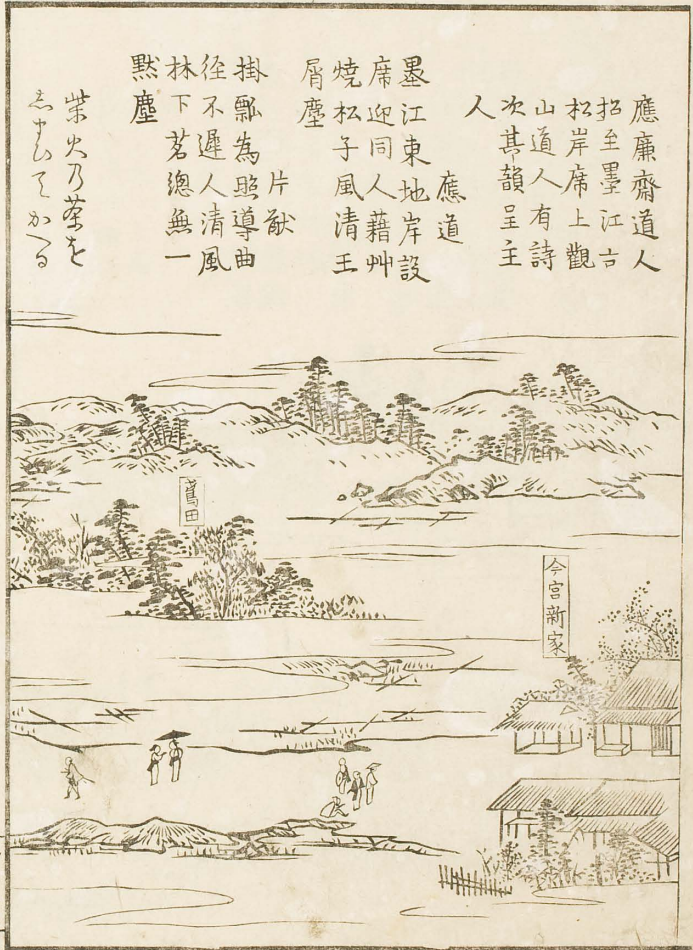 應廉齋道人
招至墨江古
松岸席上觀
山道人有詩
次其韻呈主
人
應道
墨江東地岸設
席迎同人藉艸
焼松子風清王
屑塵
片猷
掛瓢為照導曲
径不遲人清風
林下茗總無一
點塵
柴火乃茶を
かへる
今宮新家
鳶田